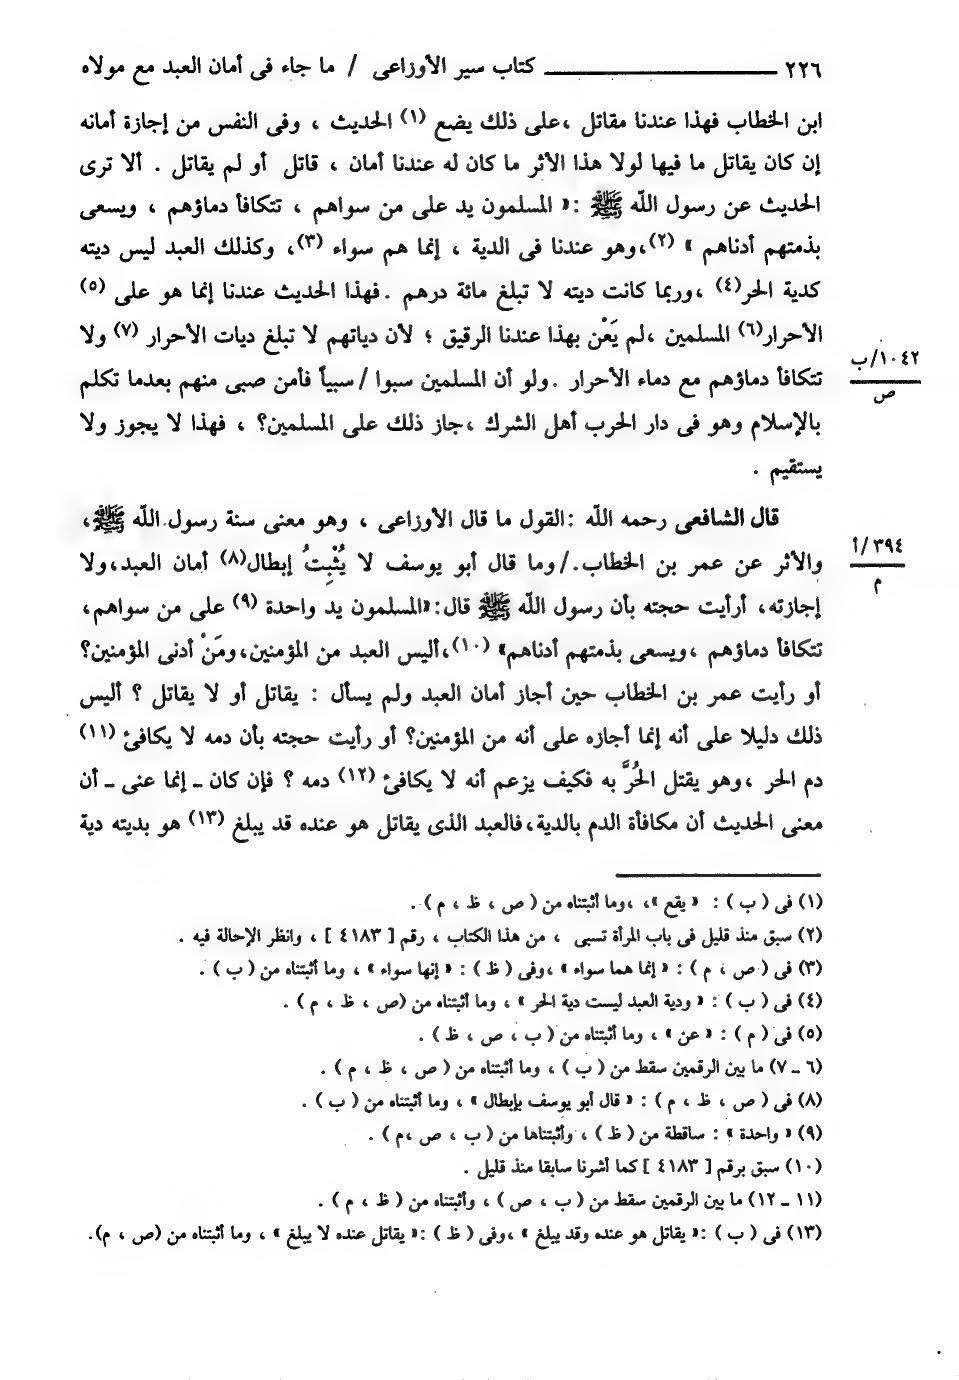 ٢٢٦ كتاب سير الأوزاعى / ما جاء فى أمان العبد مع مولاه
ابن الخطاب فهذا عندنا مقاتل ،على ذلك يضع (١) الحديث ، وفى النفس من إجازة أمانه
إن كان يقاتل ما فيها لولا هذا الأثر ما كان له عندنا أمان ، قاتل أو لم يقاتل . ألا ترى
الحديث عن رسول اللّه ﷺ :« المسلمون يد على من سواهم ، تتكافأ دماؤهم ، ويسعى
بذمتهم أدناهم » (٢)،وهو عندنا فى الدية ، إنما هم سواء (٣)، وكذلك العبد ليس ديته
كدية الحر(٤) ،وربما كانت ديته لا تبلغ مائة درهم .فهذا الحديث عندنا إنما هو على (٥)
الأحرار(٦) المسلمين ،لم يَعْن بهذا عندنا الرقيق ؛ لأن دياتهم لا تبلغ ديات الأحرار (٧) ولا
تتكافأ دماؤهم مع دماء الأحرار .ولو أن المسلمين سبوا /سبياً فأمن صبى منهم بعدما تكلم
١٠٤٢/ب
ص
بالإسلام وهو فى دار الحرب أهل الشرك ،جاز ذلك على المسلمين؟ ، فهذا لا يجوز ولا
يستقيم .
قال الشافعى رحمه اللّه :القول ما قال الأوزاعى ، وهو معنى سنة رسول اللّه ﷺ،
والأثر عن عمر بن الخطاب./وما قال أبو يوسف لا يُثْبِتُ إبطال(٨) أمان العبد،ولا
٣٩٤/أ
م
إجازته، أرأيت حجته بأن رسول اللّه ﷺ قال:«المسلمون يد واحدة (٩) على من سواهم،
تتكافأ دماؤهم ،ويسعى بذمتهم أدناهم» (١٠)،أليس العبد من المؤمنين،ومَنْ أدنى المؤمنين؟
أو رأيت عمر بن الخطاب حين أجاز أمان العبد ولم يسأل : يقاتل أو لا يقاتل ؟ أليس
ذلك دليلا على أنه إنما أجازه على أنه من المؤمنين؟ أو رأيت حجته بأن دمه لا يكافئ (١١)
دم الحر ،وهو يقتل الحُرَّ به فكيف يزعم أنه لا يكافئ (١٢) دمه ؟ فإن كان ـ إنما عنى ـ أن
معنى الحديث أن مكافأة الدم بالدية،فالعبد الذى يقاتل هو عنده قد يبلغ (١٣) هو بديته دية
(١) فى ( ب ) : « يقع »، ،وما أثبتناه من ( ص ، ظ ، م ) .
(٢) سبق منذ قليل فى باب المرأة تسبى ، من هذا الكتاب ، رقم [ ٤١٨٣ ] ، وانظر الإحالة فيه .
(٣) فى ( ص ، م ) : « إنما هما سواء » ،وفى ( ظ ) : « إنها سواء » ، وما أثبتناه من ( ب ) .
(٤) فى ( ب ) : « ودية العبد ليست دية الحر » ، وما أثبتناه من (ص ، ظ ، م ) .
(٥) فى ( م ) : « عن » ، وما أثبتناه من ( ب ، ص ، ظ ) .
(٦ ـ ٧) ما بين الرقمين سقط من ( ب ) ، وما أثبتناه من ( ص ، ظ ، م ) .
(٨) فى ( ص ، ظ ، م ) : « قال أبو يوسف بإبطال » ، وما أثبتناه من ( ب ) .
(٩) « واحدة » : ساقطة من ( ظ ) ، وأثبتناها من ( ب ، ص ،م ) .
(١٠) سبق برقم [ ٤١٨٣ ] كما أشرنا سابقا منذ قليل .
(١١ ـ ١٢) ما بين الرقمين سقط من ( ب ، ص ) ، وأثبتناه من ( ظ ، م ) .
(١٣) فى ( ب ) :« يقاتل هو عنده وقد يبلغ » ،وفى ( ظ ) :« يقاتل عنده لا يبلغ » ، وما أثبتناه من (ص ، م).